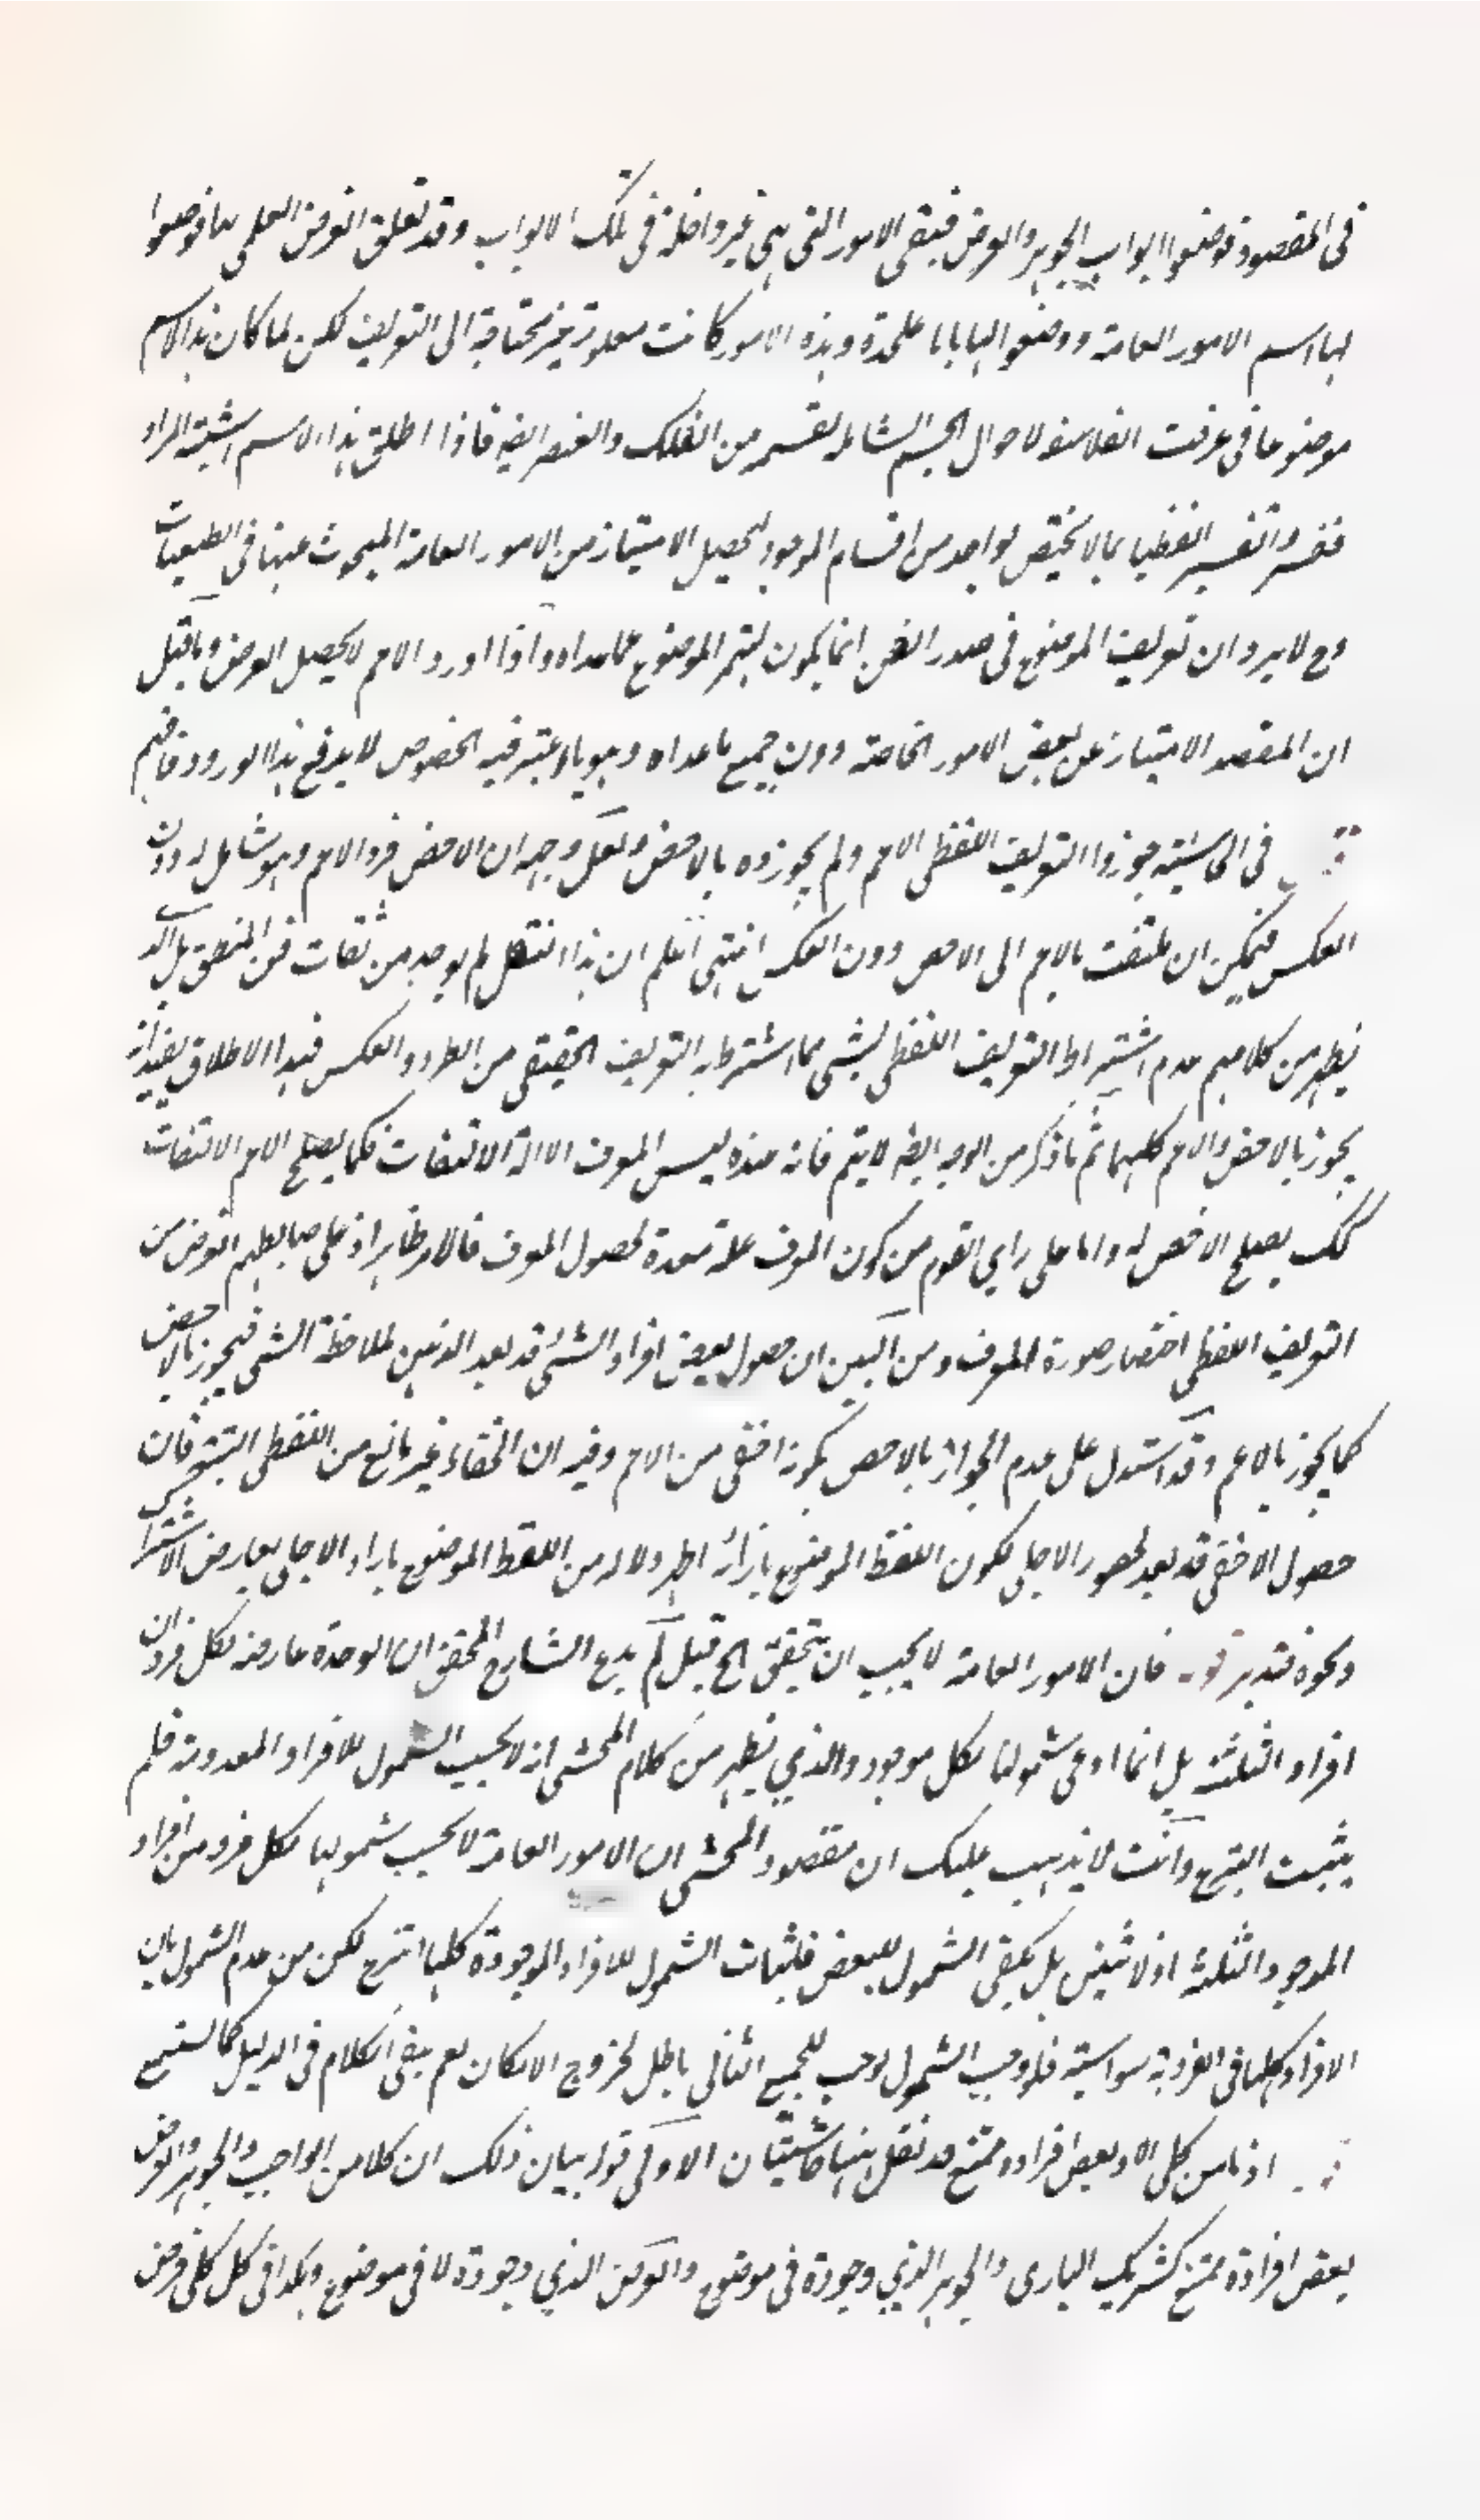 فى المقصود فوضعوا ابواب الجوهر والعرض فبقى الامور التى هى غير داخلة فى تلك الابواب وقد تعلق الغرض العلمى بها فوضعوا
لها اسم الامور العامة ووضعوا لها بابا علىحدة وهذه الامور كانت معلومة غير محتاجة الى التعريف لكن لما كان هذا الاسم
موضوعا فى عرف الفلاسفة لاحوال الجسم الشاملة لقسميه من الفلك والعنصر ايضا فاذا اطلق هذا الاسم اشتبه المراد
ففسروا تفسيرا لفظيا بما لا يختص بواحد من اقسام الموجود ليحصل الامتياز من الامور العامة المبحوث عنها فى الطبيعيات
وح لا يرد ان تعريف الموضوع فى صدر الفن انما يكون ليتميز الموضوع عما عداه واذا اورد الاعم لا يحصل الغرض وما قيل
ان المقصد الامتياز عن بعض الامور الخاصة دون جميع ما عداه وهو ما يعتبر فيه الخصوص لا يدفع هذا الورود فافهم
فى الحاشية جوزوا التعريف اللفظى الاعم ولم يجوزوه بالاخص ولعل وجهه ان الاخص فرد الاعم وهو شامل له دون
العكس فيمكن ان يلتفت بالاعم الى الاخص دون العكس انتهى اعلم ان هذا النقل لم يوجد من ثقات فن المنطق بل الذى
يظهر من كلامهم عدم اشتراط التعريف اللفظى بشى مما اشترط به التعريف الحقيقى من الطرد والعكس فهذا الاطلاق يفيد انه
يجوز بالاخص والاعم كليهما ثم ما ذكر من الوجه ايضا لا يتم فانه عنده ليس المعرف الا آلة الالتفات فكما يصلح الاعم الالتفات
كك يصلح الاخص له واما على راى القوم من كون المعرف علة معدة لحصول المعرف فالامر ظاهر اذ على ضابطهم الغرض من
التعريف اللفظى احضار صورة المعرف ومن البين ان حصول بعض افراد الشئ قد يعد الذهن لملاحظة الشى فيجوز بالاخص
كما يجوز بالاعم وقد استدل على عدم الجواز بالاخص بكونه اخفى من الاعم وفيه ان الخفاء غير مانع من اللفظى فان
حصول الاخفى قد يعد لحضور الاجلى لكون اللفظ الموضوع بازائه اظهر دلالة من اللفظ الموضوع بازاء الاجلى بعارض الاشتراك
ونحوه فتدبر قوله فان الامور العامة لا يجب ان يتحقق الخ قيل لم يدع الشارح المحقق ان الوحدة عارضة لكل فرد من
افراد الثلثة بل انما ادعى شمولها لكل موجود والذي يظهر من كلام المحشى انه لا يجب الشمول للافراد المعدومة فلم
يثبت وانت لا يذهب عليك ان مقصود المحشى ان الامور العامة لا يجب شمولها لكل فرد من افراد
الموجود الثلثة او الاثنين بل يكفى الشمول للبعض فاثبات الشمول للافراد الموجودة كلها لكن من عدم الشمول بان
الافراد كلها فى الفردية سواسية فلو وجب الشمول لوجب للجميع الثانى باطل لخروج الامكان نعم بقى الكلام فى الدليل كما ستسمع
اذ ما من كلى الا وبعض افراده ممتنع قد نقل ههنا حاشيتان الاولى قوله بيان ذلك ان كلا من الواجب والجوهر والعرض
بعض افراده ممتنع كشريك البارى والجوهر الذي وجوده فى موضوع والعرض الذي وجوده لا فى موضوع وهكذا فى كل كلى فرض